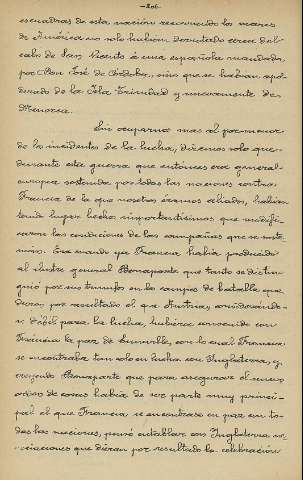 -206-
escuadras de esta nación recorriendo los mares
de América no solo habian derrotado cerca del
cabo de San Vicente á una española mandada
por Don José de Córdoba, sino que se habian apo-
derado de la Isla Trinidad y nuevamente de
Menorca.
Sin ocuparnos mas al pormenor
de los incidentes de la lucha, diremos solo que
durante esta guerra que entonces era general
europea sostenida por todas las naciones contra
Francia de la que nosotros éramos aliados, habian
tenido lugar hechos importantísimos que modifi-
caron las condiciones de las campañas que se soste-
nian. Era cuando ya Francia habia producido
al ilustre general Bonaparte que tanto se distin-
guió por sus triunfos en los campos de batalla que
dieron por resultado el que Austria, considerándo-
se débil para la lucha, hubiese convenido con
Francia la paz de Luneville, con lo cual Francia
se encontraba tan solo en lucha con Inglaterra, y
creyendo Bonaparte que para asegurar el nuevo
orden de cosas habia de ser parte muy princi-
pal el que Francia se encontrase en paz con to-
das las naciones, pensó entablar con Inglaterra ne-
gociaciones que dieran por resultado la celebración